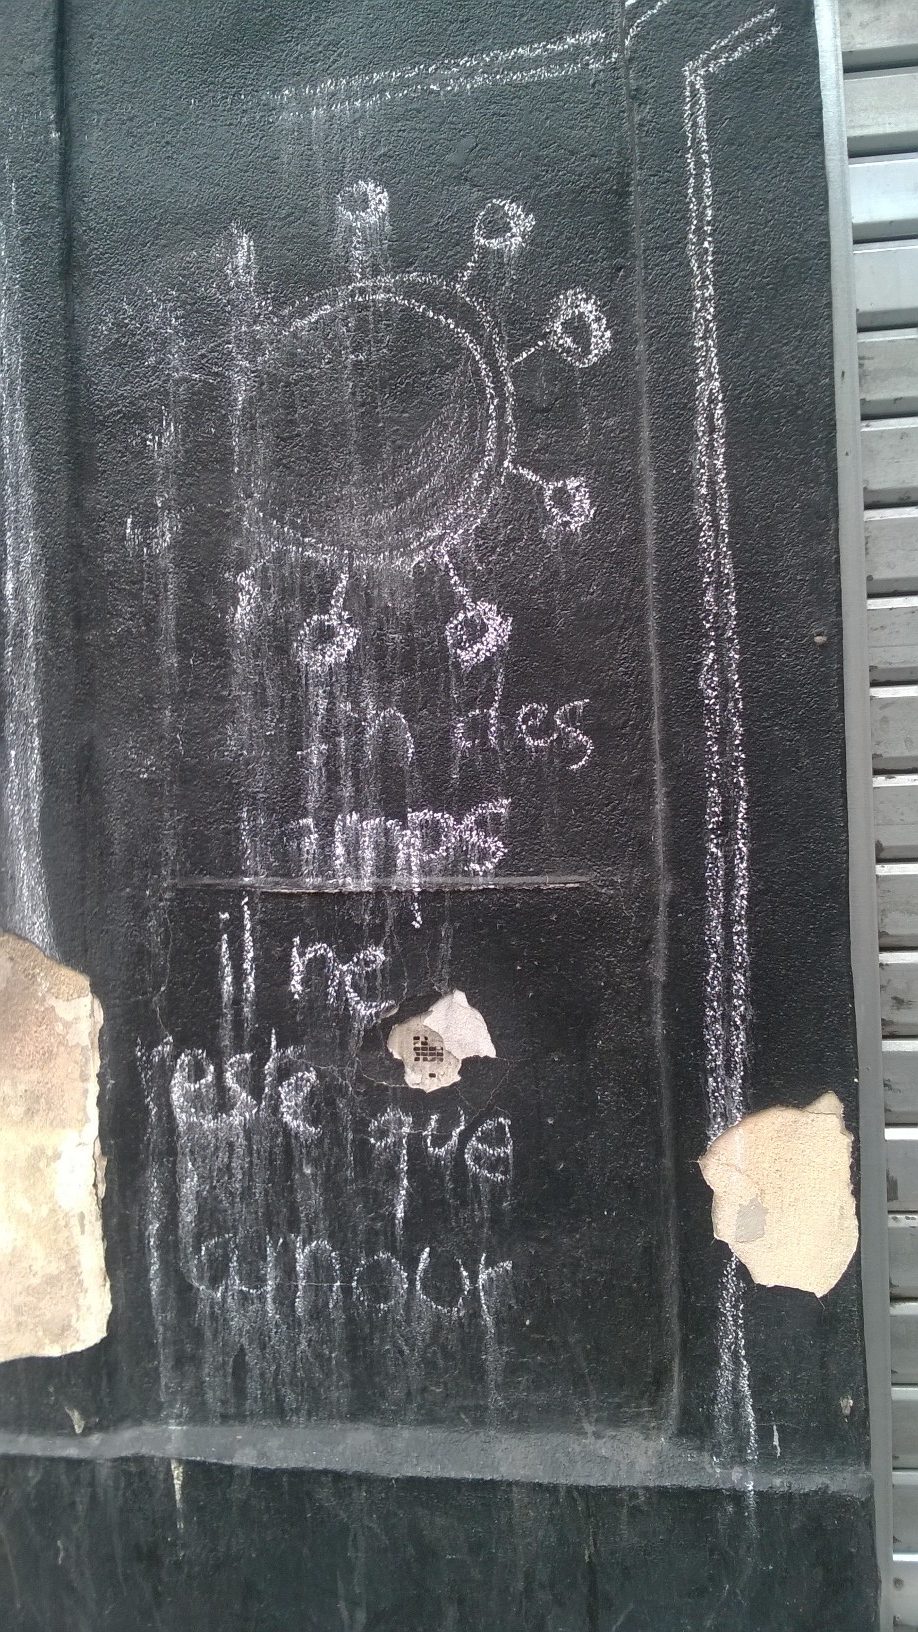 fin des
temps
il ne
reste que
amour